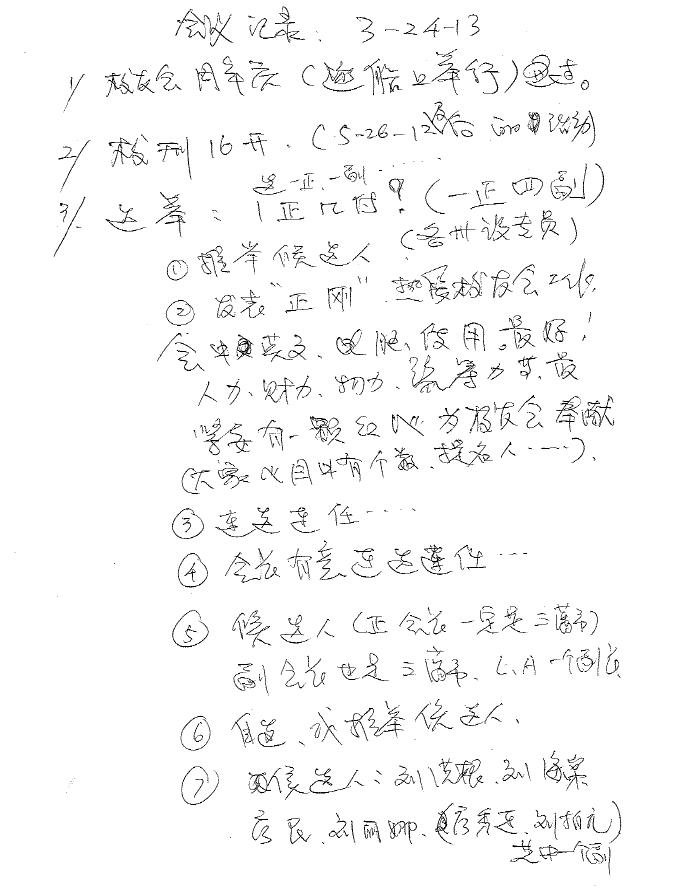 会议记录: 3-24-13
1/ 校友会周年庆(游船上举行)通过。
2/ 校刊16开. (5-26-12以后的活动)
选一正、一副......
3/. 选举: 1正几付? (一正四副)
(各州设专员)
① 推举候选人
② 发表"正刚" 热爱校友会工作.
会中英文、电脑、使用.最好!
人力、财力、物力、等力苦、最
紧要有一颗红心为校友会奉献
(大家心目中有个数、提名人......).
③ 连选连任....
④ 会长有意连选连任...
⑤ 候选人(正会长一定是三藩市)
副会长也是三藩市、L.A一个副长
⑥ 自选、或推举候选人.
⑦ 候选人: 刘洪根、刘
刘丽娜、刘柏元)
其中一个副